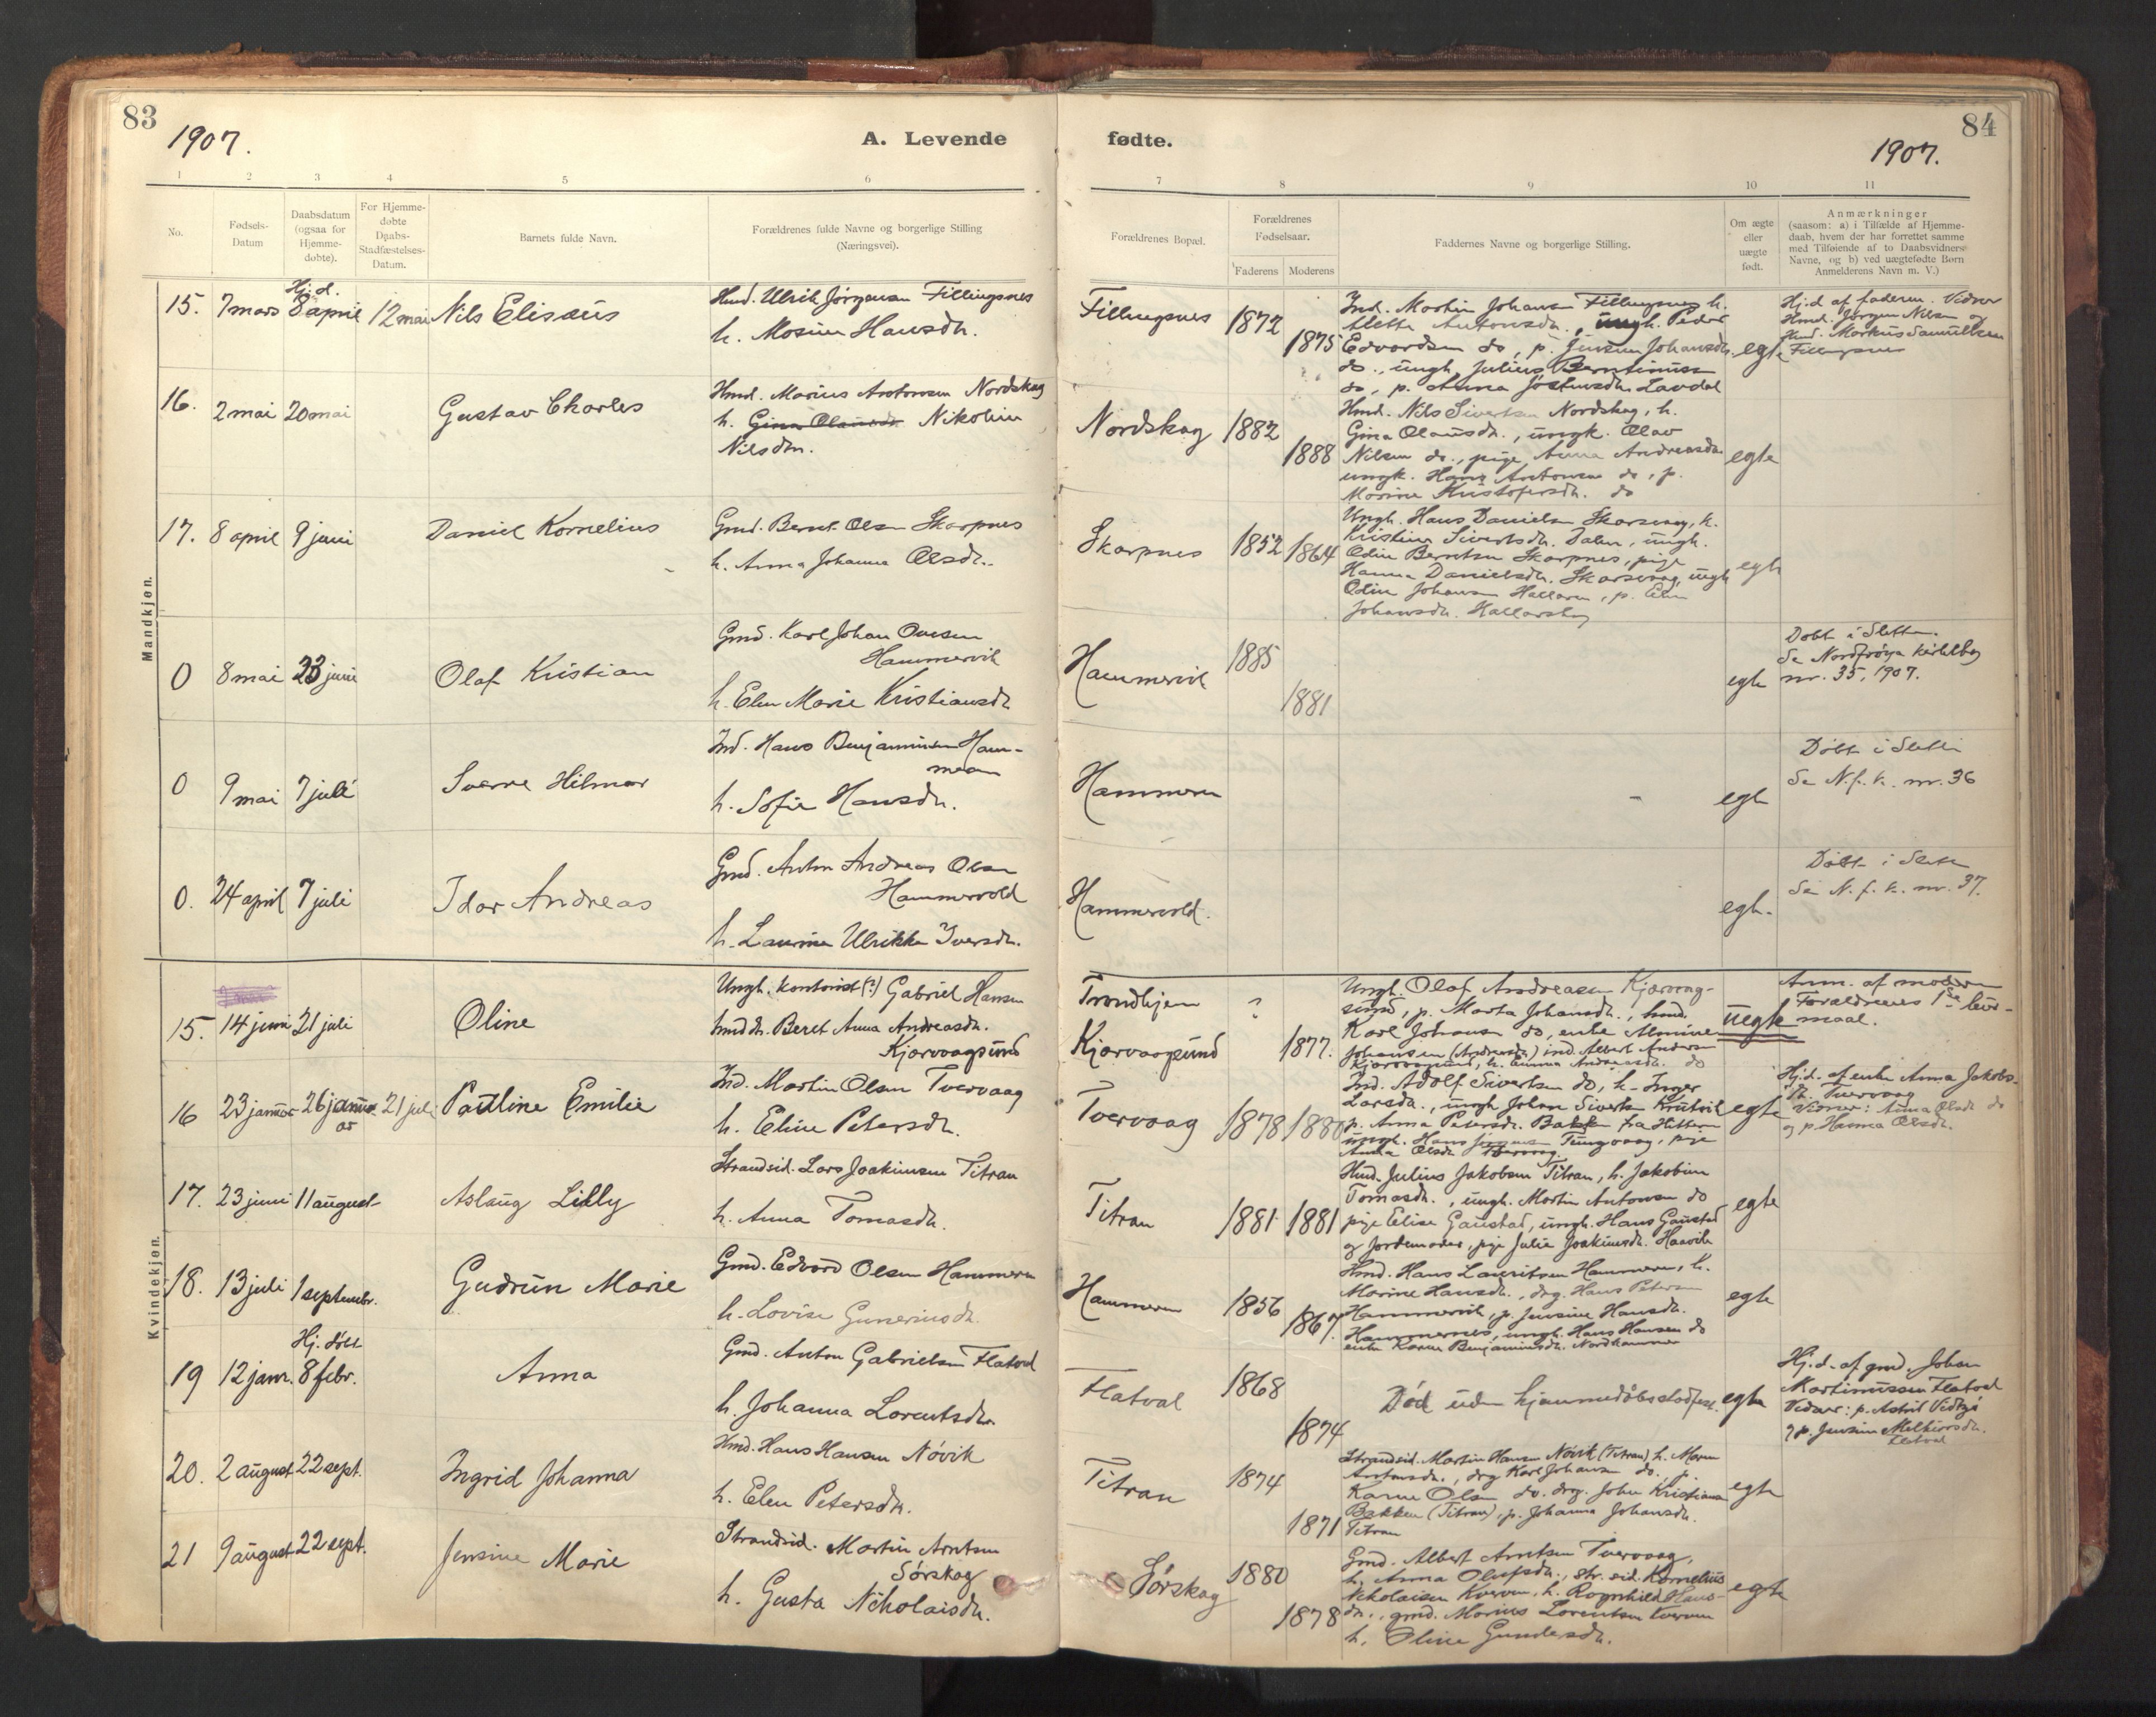 83
1907.
A. Levende
1 2 3 4 5 6
No.
Fødsels-
Datum
Daabsdatum
(ogsaa for
Hjemme-
døbte).
For Hjemme-
døbte
Daabs-
Stadfæstelses-
Datum.
Barnets fulde Navn.
Forældrenes fulde Navne og borgerlige Stilling
(Næringsvei).
Mandkjøn.
Hj. d.
15. 7 mars 8 april 12 mai Nils Elisæus
Hmd. Ulrik Jørgensen Fillingsnes
h. Mosine Hansdh.
16. 2 mai 20 mai Gustav Charles
Hmd. Marius Antonsen Nordskag
h. Gina Olausdh. Nikoline
Nilsdtn.
17. 8 april 9 juni Daniel Kornelius
Gmd. Bernt Olsen Skarpnes
h. Anna Johanna Olsdh.
0 8 mai 23 juni Olaf Kristian
Gmd. Karl Johan Ovesen
Hammervik
h. Elen Marie Kristiansdh
0 9 mai 7 juli Sverre Hilmar
Ind. Hans Benjaminsen Ham-
meren
h. Sofie Hansdh.
0. 24 april 7 juli Idar Andreas
Gmd. Anton Andreas Olsen
Hammervold
h. Laurine Ulrikke Iversdh.
Kvindekjøn.
15. 14 juni 21 juli Oline
Ungk. kontorist (?) Gabriel Hansen
hmd dh. Beret Anna Andreasdh.
Kjørvaagsund
16 23 januar 26 janu- 21 juli Pauline Emilie
ar
Ind. Martin Olsen Tvervaag
h. Eline Petersdh.
17. 23 juni 11 august Aslaug Lilly
Strandsid. Lars Joakimsen Titran
h. Anna Tomasdh.
18. 13 juli 1 septembr. Gudrun Marie
Gmd. Edvard Olsen Hammeren
h. Lovise Guneriusdh.
Hj. døbt
19 12 janr. 8 febr. Anna
Gmd. Anton Gabrielsen Flatval
h. Johanna Lorentsdh
20. 2 august 22 sept. Ingrid Johanna
Hmd. Hans Hansen Nøvik
h. Elen Petersdh.
21 9 august 22 sept. Jensine Marie
Strandsid. Martin Arntsen
Sørskag
h. Gusta Nikolaisdh.
84
fødte.
1907.
7 8 9 10 11
Forældrenes Bopæl.
Forældrenes
Fødselsaar.
Faderens Moderens
Faddernes Navne og borgerlige Stilling.
Om ægte
eller
uægte
født.
Anmærkninger
(saasom: a) i Tilfælde af Hjemme-
daab, hvem der har forrettet samme
med Tilføiende af to Daabsvidners
Navne, og b) ved uægtefødte Børn
Anmelderens Navn m. V.)
Fillingsnes 1872
1875
Ind. Martin Johansen Fillingsnes h.
Alette Antonsdh., ungk. Peder
Edvardsen do, p. Jensine Johansdh.
do., ungk. Julius Berntinusen
do, p. Anna Jostensdh. Lavdal
egte
Hj.d af faderen. Vidner
Hmd. Jørgen Nilsen og
Hmd. Markus Samuelsen
Fillingsnes
Nordskag 1882
1888
Hmd. Nils Sivertsen Nordskag, h.
Gina Olausdh., ungk. Olav
Nilsen do., pige Anna Andreasdh
ungk. Hans Antonsen do, p.
Marine Kristofersdh. do
egte
Skarpnes 1852 1864
Ungk. Hans Danielsen Skarsvaag, h.
Kristine Sivertsdh. Dalen, ungk.
Odin Berntsen Skarpnes, pige
Hanna Danielsdh. Skarsvaag, ungk
Odin Johansen Hallaren, p. Elen
Johansdh. Hallarskag
egte
Hammervik 1885
1881
egte
Døbt i Sletta.
Se Nordfrøya kirkebog
nr. 35, 1907.
Hammeren
egte
Døbt i Sletta
Se N. f. k. nr. 36
Hammervold.
egte.
Døbt i Sletta
Se N. f. k. nr. 37.
Trondhjem ?
Kjørvaagsund 1877.
Ungk. Olaf Andreasen Kjørvaag-
sund, p. Marta Johansdh., hmd.
Karl Johansen do, enke Almine
Johansen (Andreasdh) ind. Albert Andersen
Kjørvaagsund, h. Emma Andreasdh. do
uegte
Anm. af moderen
Forældrenes 1ste leier-
maal.
Tvervaag 1878 1880
Ind. Adolf Sivertsen do, h. Inger
Larsdh., ungk. Johan Sivertsen Krutvik
p. Anna Petersdh. Bakken fra Hitteren
ungk. Hans Tungvaag, pige
Anna Olsdh
egte
Hj.d. af enke Anna Jakobs-
dh. Tvervaag
Vidner: Anna Olsdh do
og p. Hanna Olsdh.
Titran 1881 1881
Hmd. Julius Jakobsen Titran, h. Jakobine
Tomasdh., ungk. Martin Antonsen do
pige Elise Gaustad, ungk. Hans Gaustad
og Jordemoder, pige Julie Joakimsdh. Haavik
egte
Hammeren 1856
1867
Hmd. Hans Lauritsen Hammeren, h.
Marine Hansdh., drg. Hans Petersen
Hammervik, p. Jensine Hansdh.
Hammernes, ungk. Hans Hansen do
enke Karen Benjaminsdh. Nordhammer
egte
Flatval 1868
1874
Død uden hjemmedøbsstadfest.
egte
Hj.d. af gmd Johan
Martinussen Flatval
Vidner: p. Astrid Vidtsjø
og p. Jensine Melkiorsdh.
Flatval
Titran 1874
1871
Strandsid. Martin Hansen Nøvik (Titran) h. Maren
Antonsdh., drg Karl Johansen do. p.
Karen Olsen do. drg. John Kristiansen
Bakken (Titran), p. Johanna Johansdh.
Titran
egte
Sørskag 1880
1878
Gmd. Albert Arntsen Tvervaag,
h. Anna Olufsdh., str. sid. Kornelius
Nikolaisen Kverven, h. Ragnhild Hans-
dh., gmd. Marius Lorentsen Kverven
h. Oline Gundersdh.
egte